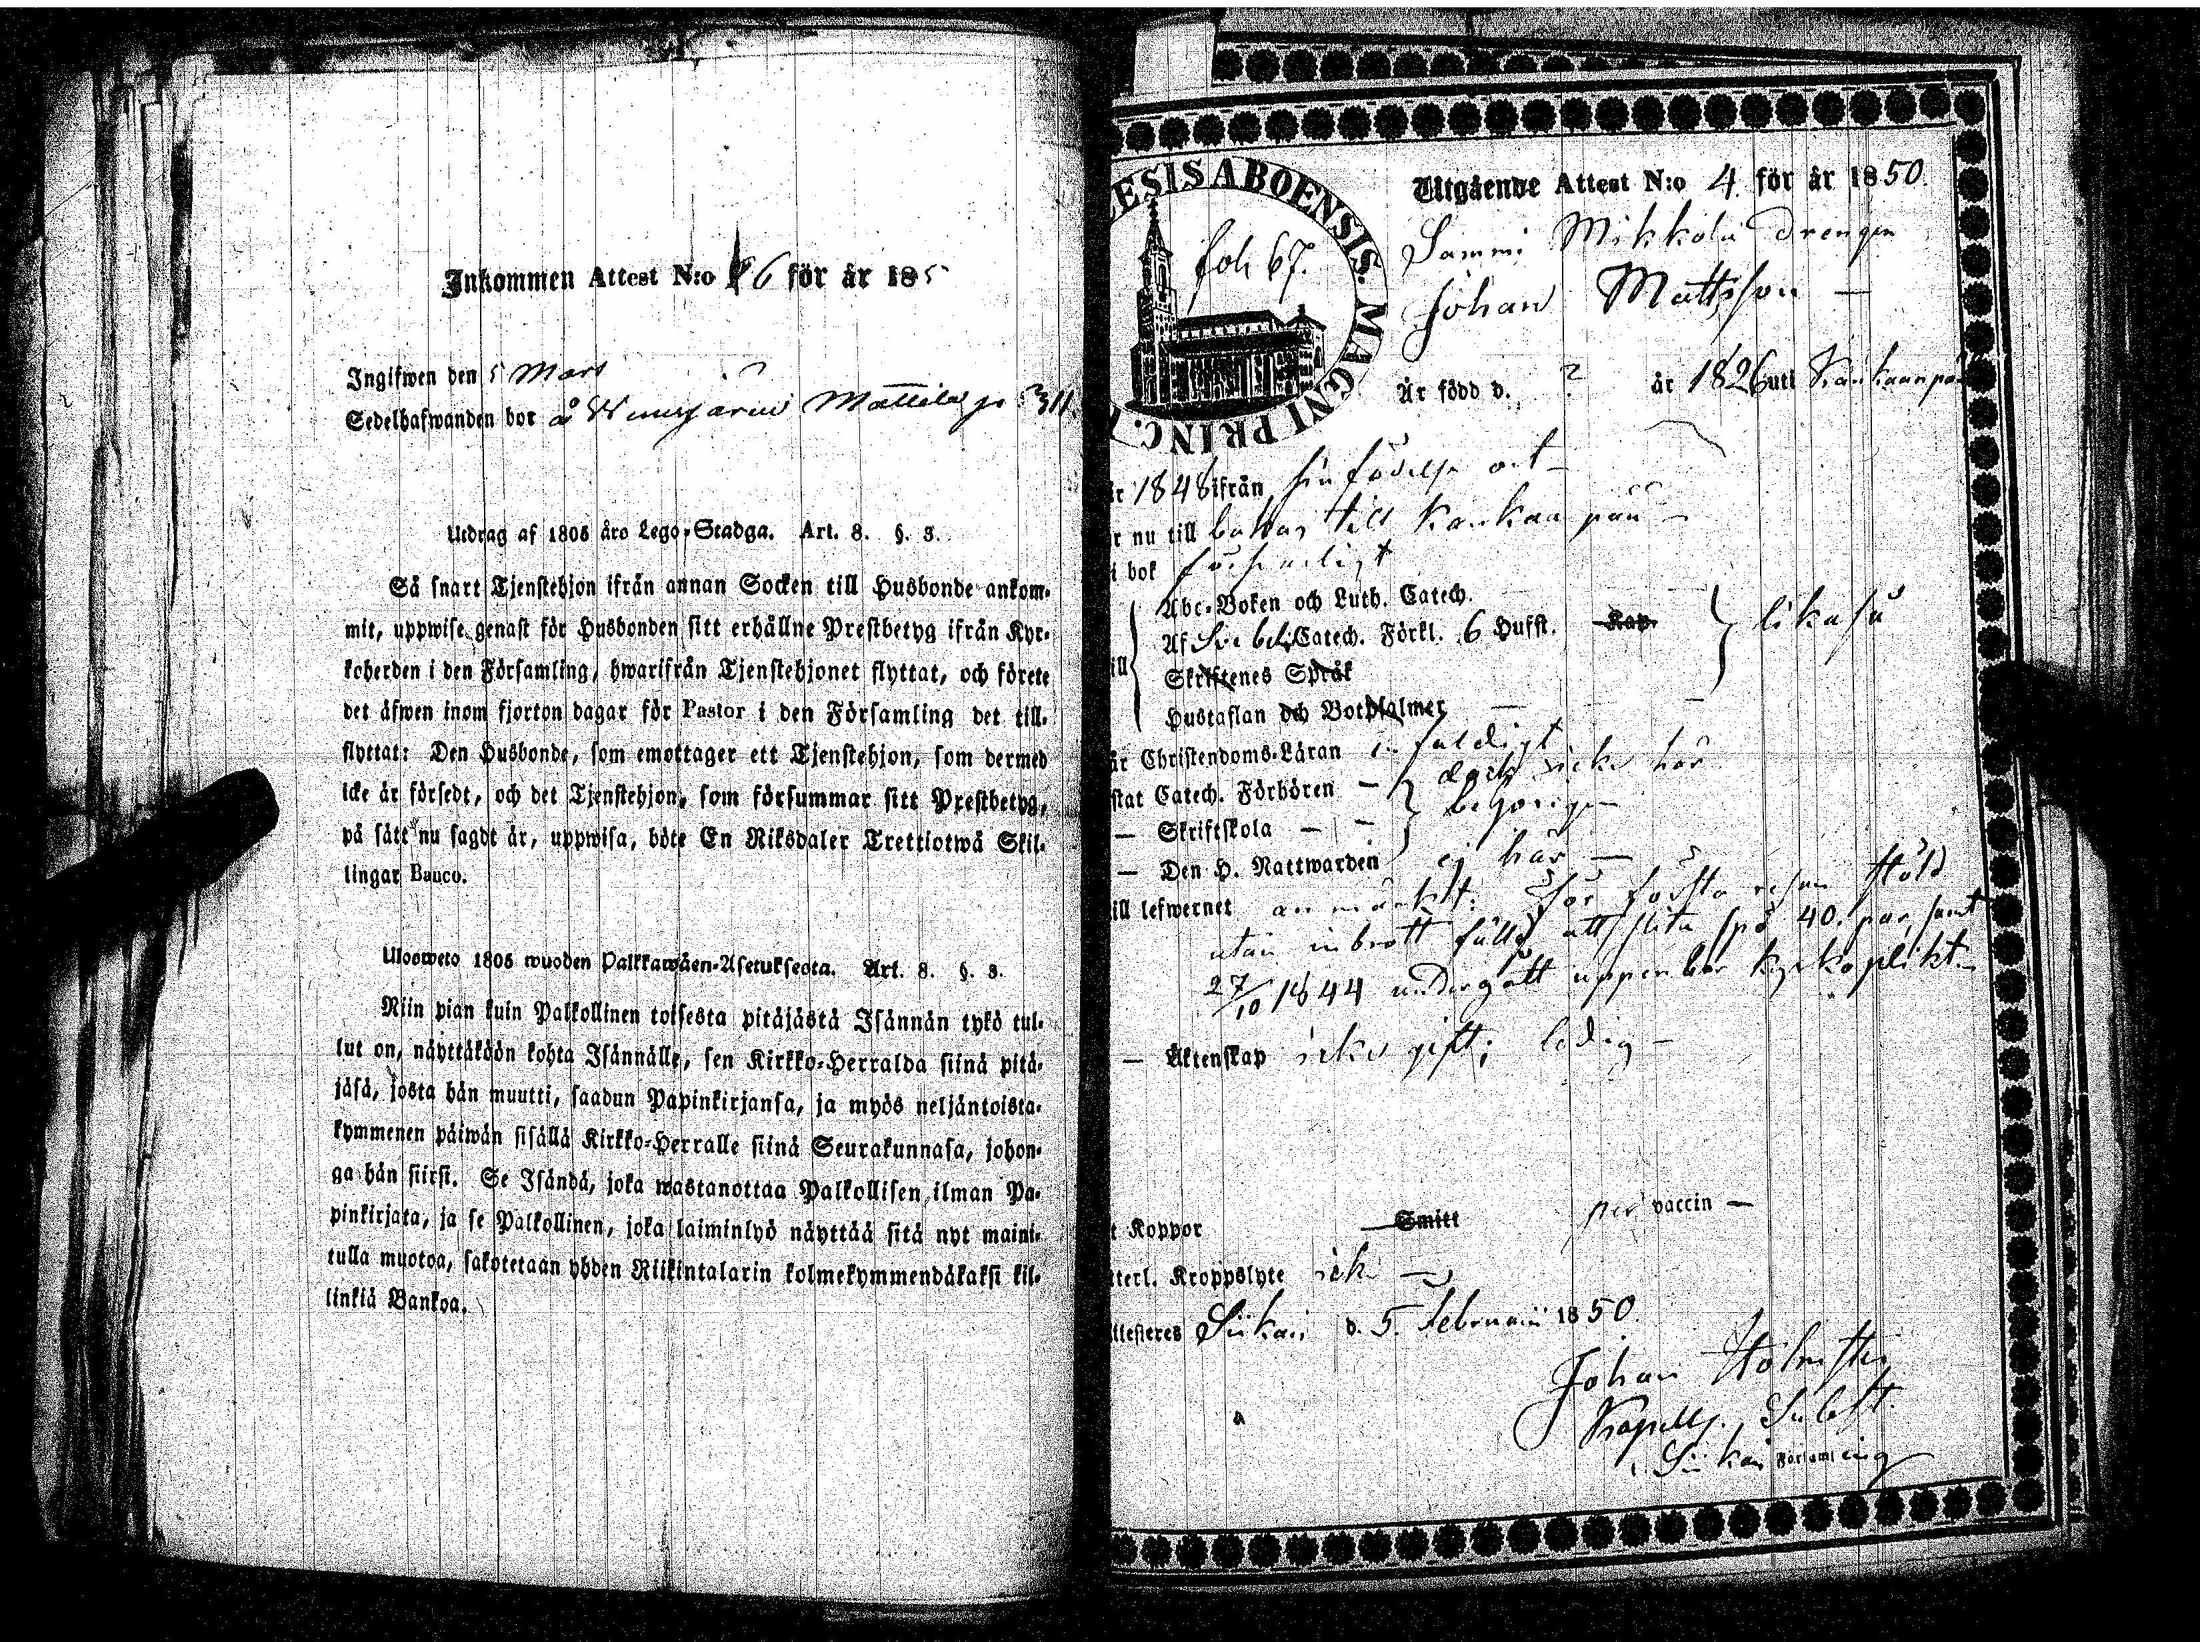 Inkommen Attest N:o 6 för år 185
Ingifwen den 5 Mars
Sedelhafwanden bor å Mattila
Utdrag af 1805 års Lego-Stadga. Art. 8. §. 3.
Så snart Tjenstehjon ifrån annan Socken till Husbonde ankom-
mit, uppwise genast för Husbonden sitt erhållne Prestbetyg ifrån Kyr-
koherden i den Församling, hwarifrån Tjenstehjonet flyttat, och förete
det äfwen inom fjorton dagar för Pastor i den Församling det till-
flyttat: Den Husbonde, som emottager ett Tjenstehjon, som dermed
icke är försedt, och det Tjenstehjon, som försummar sitt Prestbetyg,
på sätt nu sagdt är, uppwisa, böte En Riksdaler Trettiotwå Skil-
lingar Banco.
Ulosweto 1805 wuoden Palkkawäen-Asetuksesta. Art. 8. §. 3.
Niin pian kuin Palkollinen toisesta pitäjästä Isännän tykö tul-
lut on, näyttäköön kohta Isännälle, sen Kirkko-Herralda siinä pitä-
jäsä, josta hän muutti, saadun Papinkirjansa, ja myös neljäntoista-
kymmenen päiwän sisällä Kirkko-Herralle siinä Seurakunnasa, johon-
ga hän siirsi. Se Isändä, joka wastanottaa Palkollisen ilman Pa-
pinkirjata, ja se Palkollinen, joka laiminlyö näyttää sitä nyt maini-
tulla muotoa, sakotetaan yhden Riikintalarin kolmekymmendäkaksi kil-
linkiä Bankoa.
ESIS ABOENSIS. MAGNI PRINC.
fol 67.
Utgående Attest N:o 4 för år 1850.
Sammi Mikkola drengen
Johan Mattsson
Är född d. ? år 1826 uti Kankaanpää
år 1848 ifrån sin födelse ort
r nu till bakas till Kankaanpää
i bok försvarligt
Abc-Boken och Luth. Catech.
Af Catech. Förkl. 6 Hufst. Kap. likaså
Skriftenes Språk
Hustaflan och Botpsalmer
är Christendoms-Läran enfaldigt
stat Catech. Förhören dock icke här
— Skriftskola — behörigen
— Den H. Nattwarden ej här —
ill lefwernet anmärkt: för första resan stöld
utan inbrott fälld att slita spö 40. par, samt
27/10 1844 undergått uppenbar kyrkoplikt
— Äktenskap icke gift; ledig —
t Koppor Smitt per vaccin —
tterl. Kroppslyte icke —
ttesteres Siikais d. 5 Februarii 1850.
Johan
Kapells.
i Siikais Församling